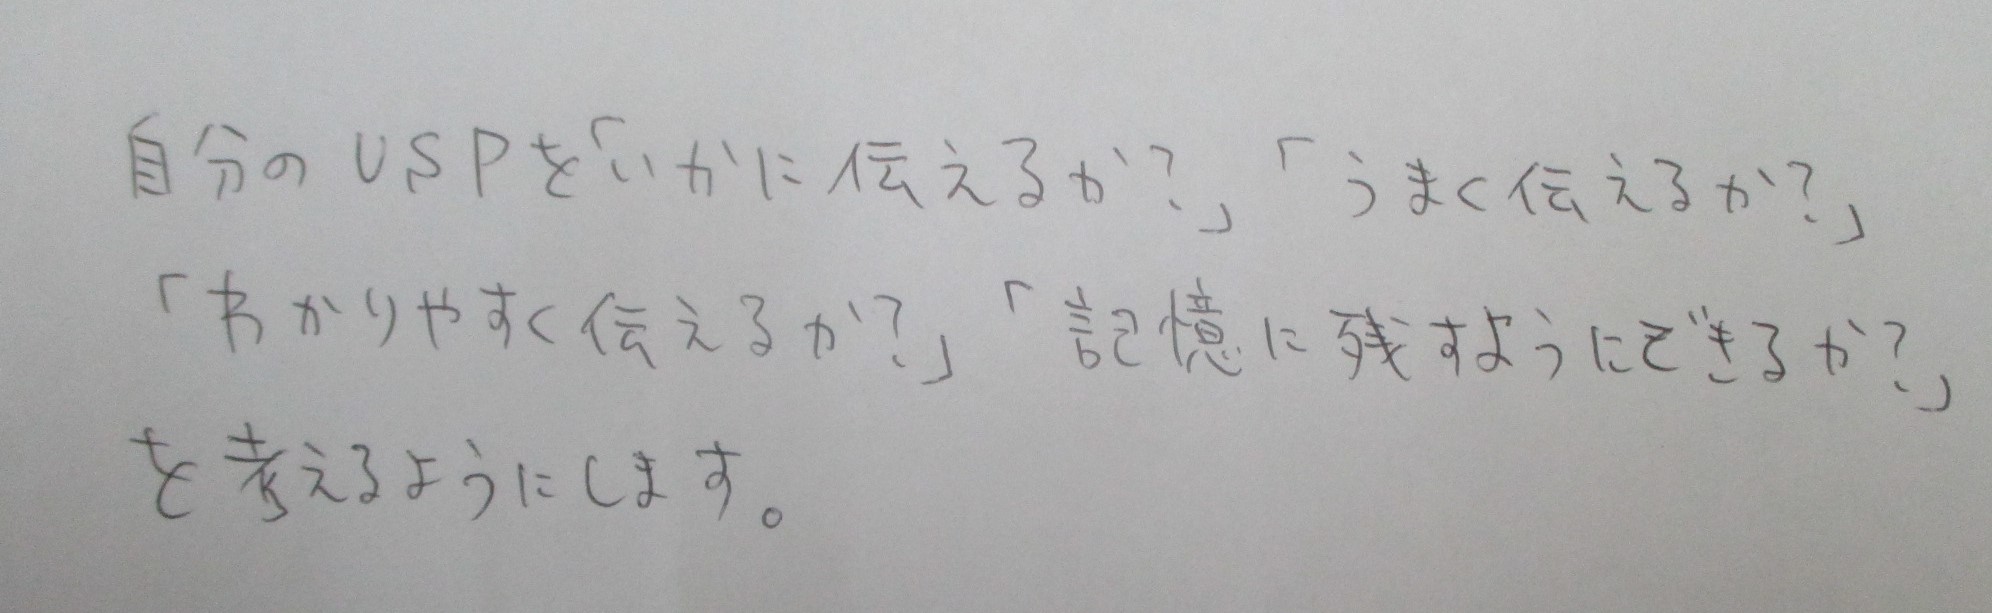 自分のUSPを「いかに伝えるか?」「うまく伝えるか?」
「わかりやすく伝えるか?」「記憶に残すようにできるか?」
を考えるようにします。